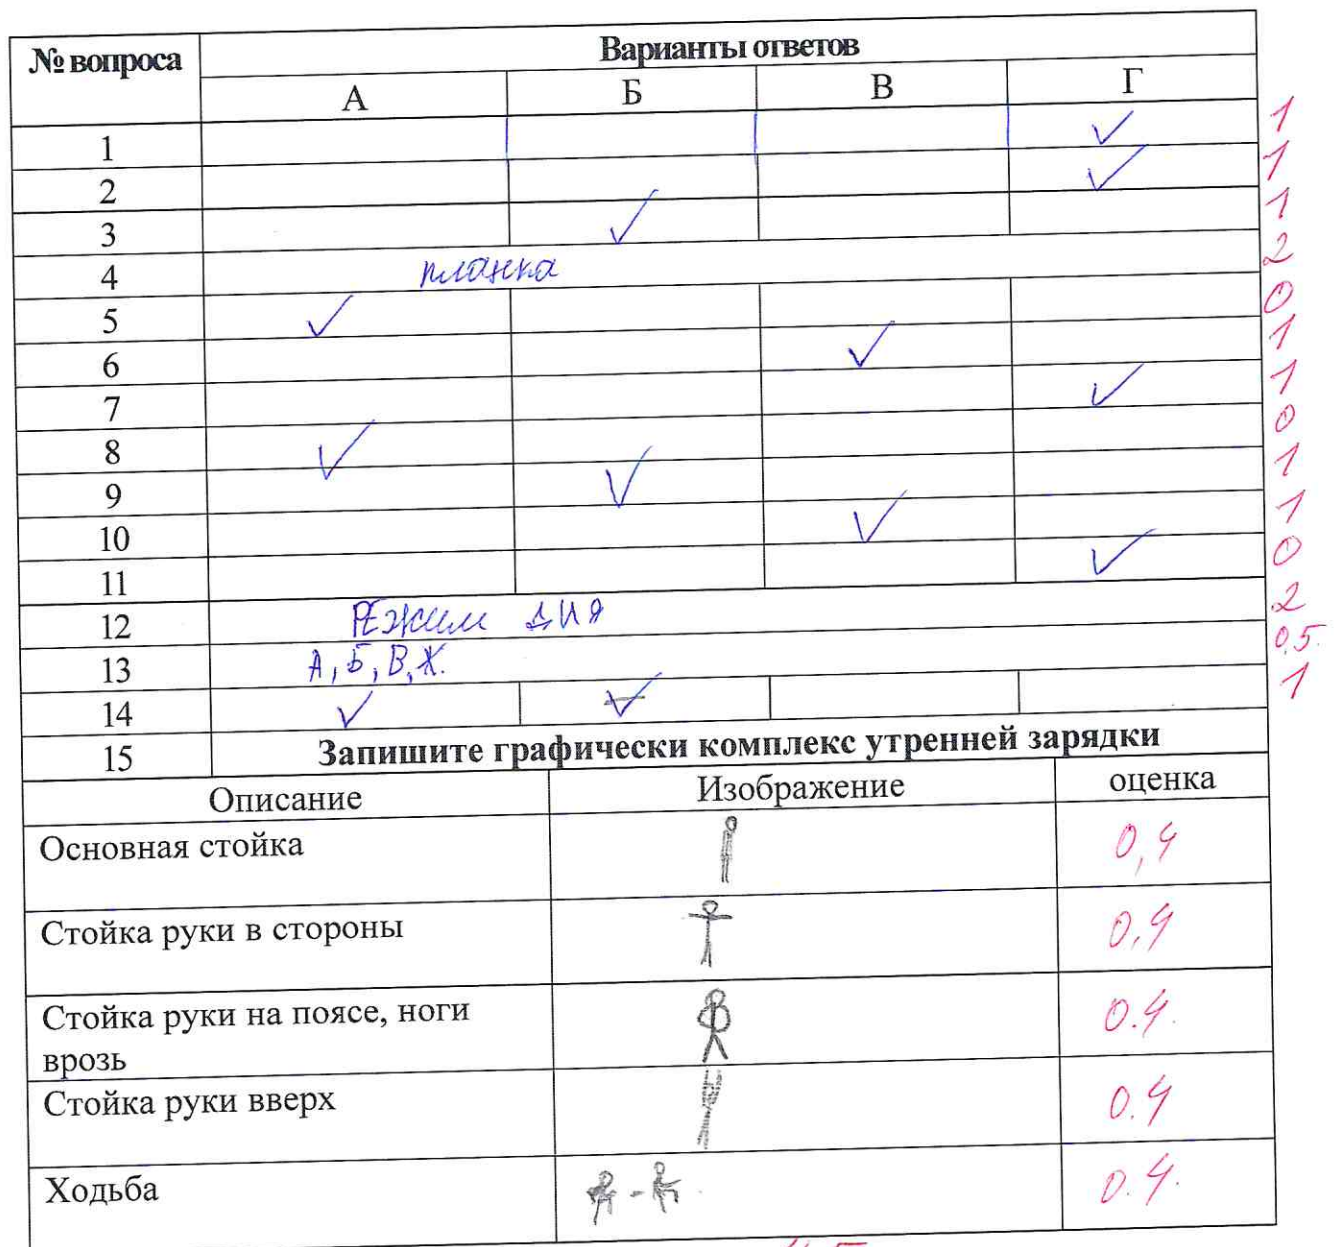 № вопроса Варианты ответов
А Б В Г
1 ✓ 1
2 ✓ 1
3 ✓ 1
4 планка 2
5 ✓ 0
6 ✓ 1
7 ✓ 1
8 ✓ 0
9 ✓ 1
10 ✓ 1
11 ✓ 0
12 РЕжим дня 2
13 А, Б, В, Ж. 0,5.
14 ✓ ✓ 1
15 Запишите графически комплекс утренней зарядки
Описание Изображение оценка
Основная стойка 0,4
Стойка руки в стороны 0,4
Стойка руки на поясе, ноги 0.4.
врозь
Стойка руки вверх 0.4
Ходьба 0.4.